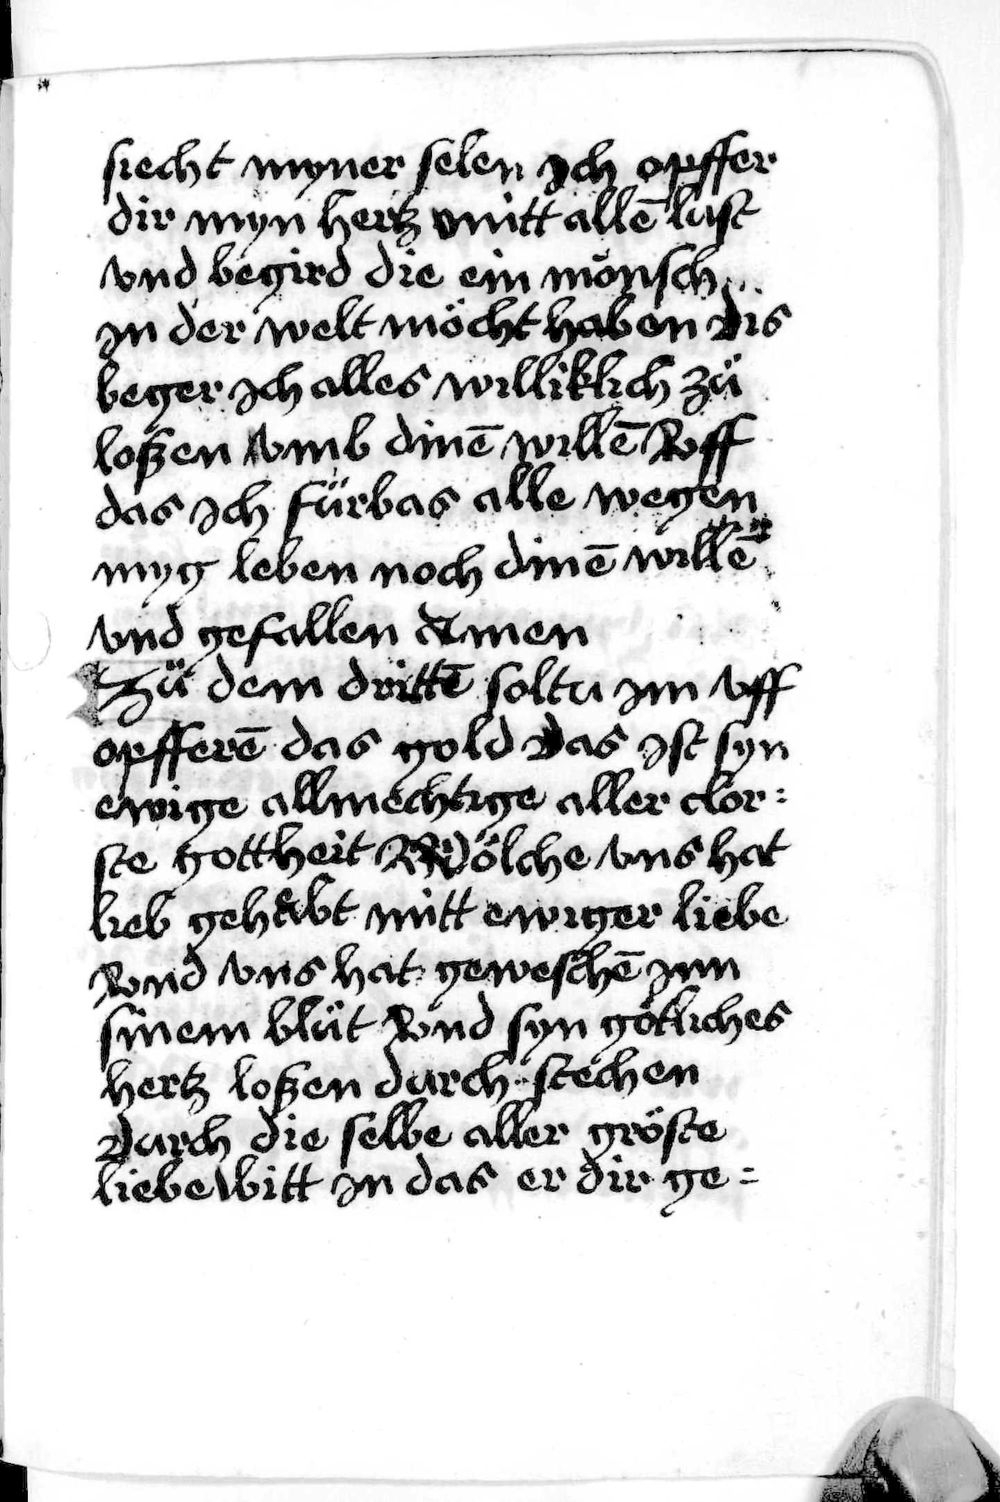 siecht myner selen Ich opffer
dir myn hertz mitt allē lust
vnd begird die ein mönsch
in der welt möcht haben Dis
beger ich alles williklich zů
loßen vmb dinē willē Vff
das ich fürbas alle wegen
myg leben noch dinē willē
vnd gefallen Amen
Zů dem drittē soltu im vff
opfferē das gold Das ist syn
ewige allmechtige aller clor=
ste gottheit Wölche vns hat
lieb gehebt mitt ewiger liebe
Vnd vns hat geweschē inn
sinem blůt Vnd syn götliches
hertz loßen durch stechen
Durch die selbe aller gröste
liebe bitt in das er dir ge=